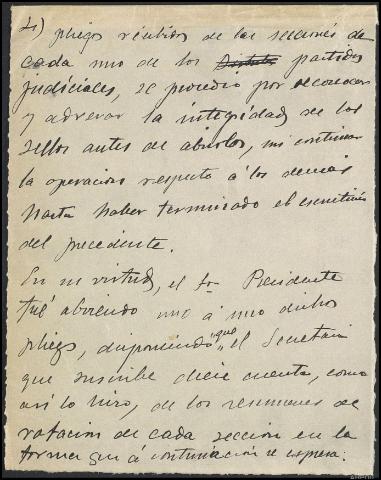 4) pliegos recibidos de las secciones de
cada uno de los Distritos partidos
judiciales, se procedió por reconocer
y adverar la integridad de los
sellos antes de abrirlos, sin continuar
la operacion respecto á los demas
hasta haber terminado el escrutinio
del precedente.
En su virtud, el Sr Presidente
fué abriendo uno á uno dichos
pliegos, disponiendo "que" el Secretario
que suscribe diese cuenta, como
asi lo hizo, de los resumenes de
votacion de cada seccion en la
forma que á continuacion se espresa.